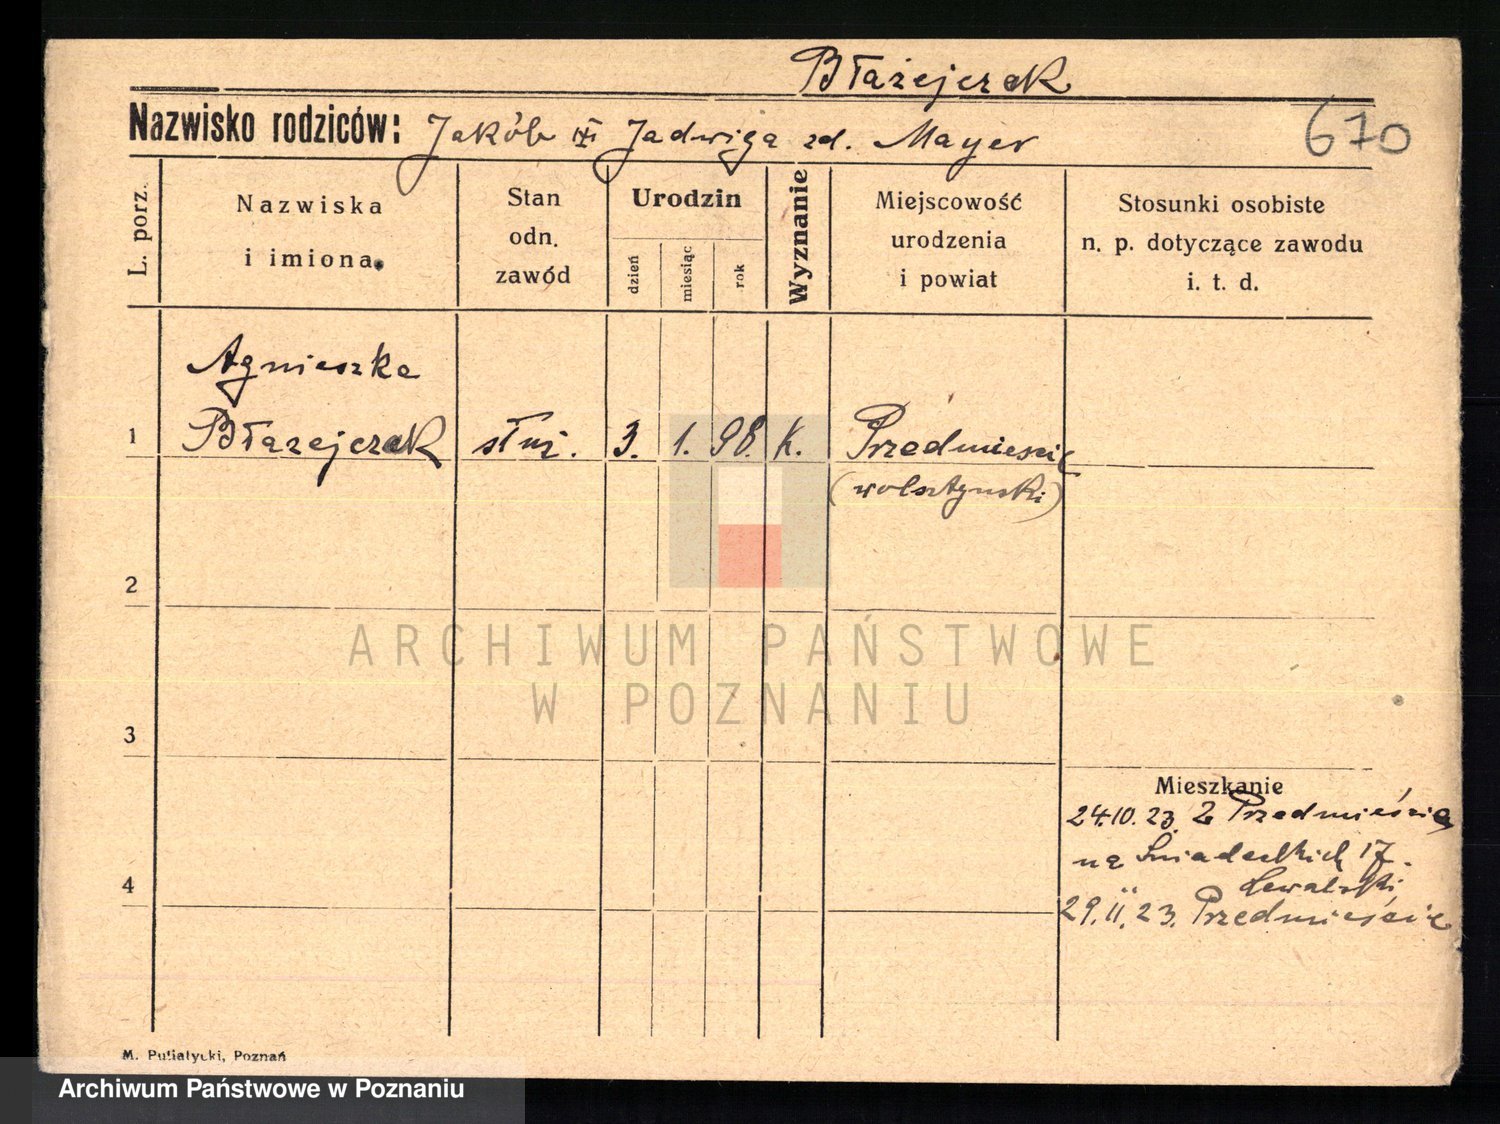 Błażejczak
Nazwisko rodziców: Jakób Jadwiga zd. Mayer
670
L. porz.
Nazwiska
i imiona.
Stan
odn.
zawód
Urodzin
dzień
miesiąc
rok
Wyznanie
Miejscowość
urodzenia
i powiat
Stosunki osobiste
n. p. dotyczące zawodu
i. t. d.
Agnieszka
1 Błażejczak służ. 3. 1. 98. k. Przedmieście
(wolsztyński)
2
ARCHIWUM PAŃSTWOWE
W POZNANIU
3
Mieszkanie
24.10.23. z Przedmieścia
na Śniadeckich 17.
4
29.11.23. Przedmieście
M. Putiatycki, Poznań
Archiwum Państwowe w Poznaniu